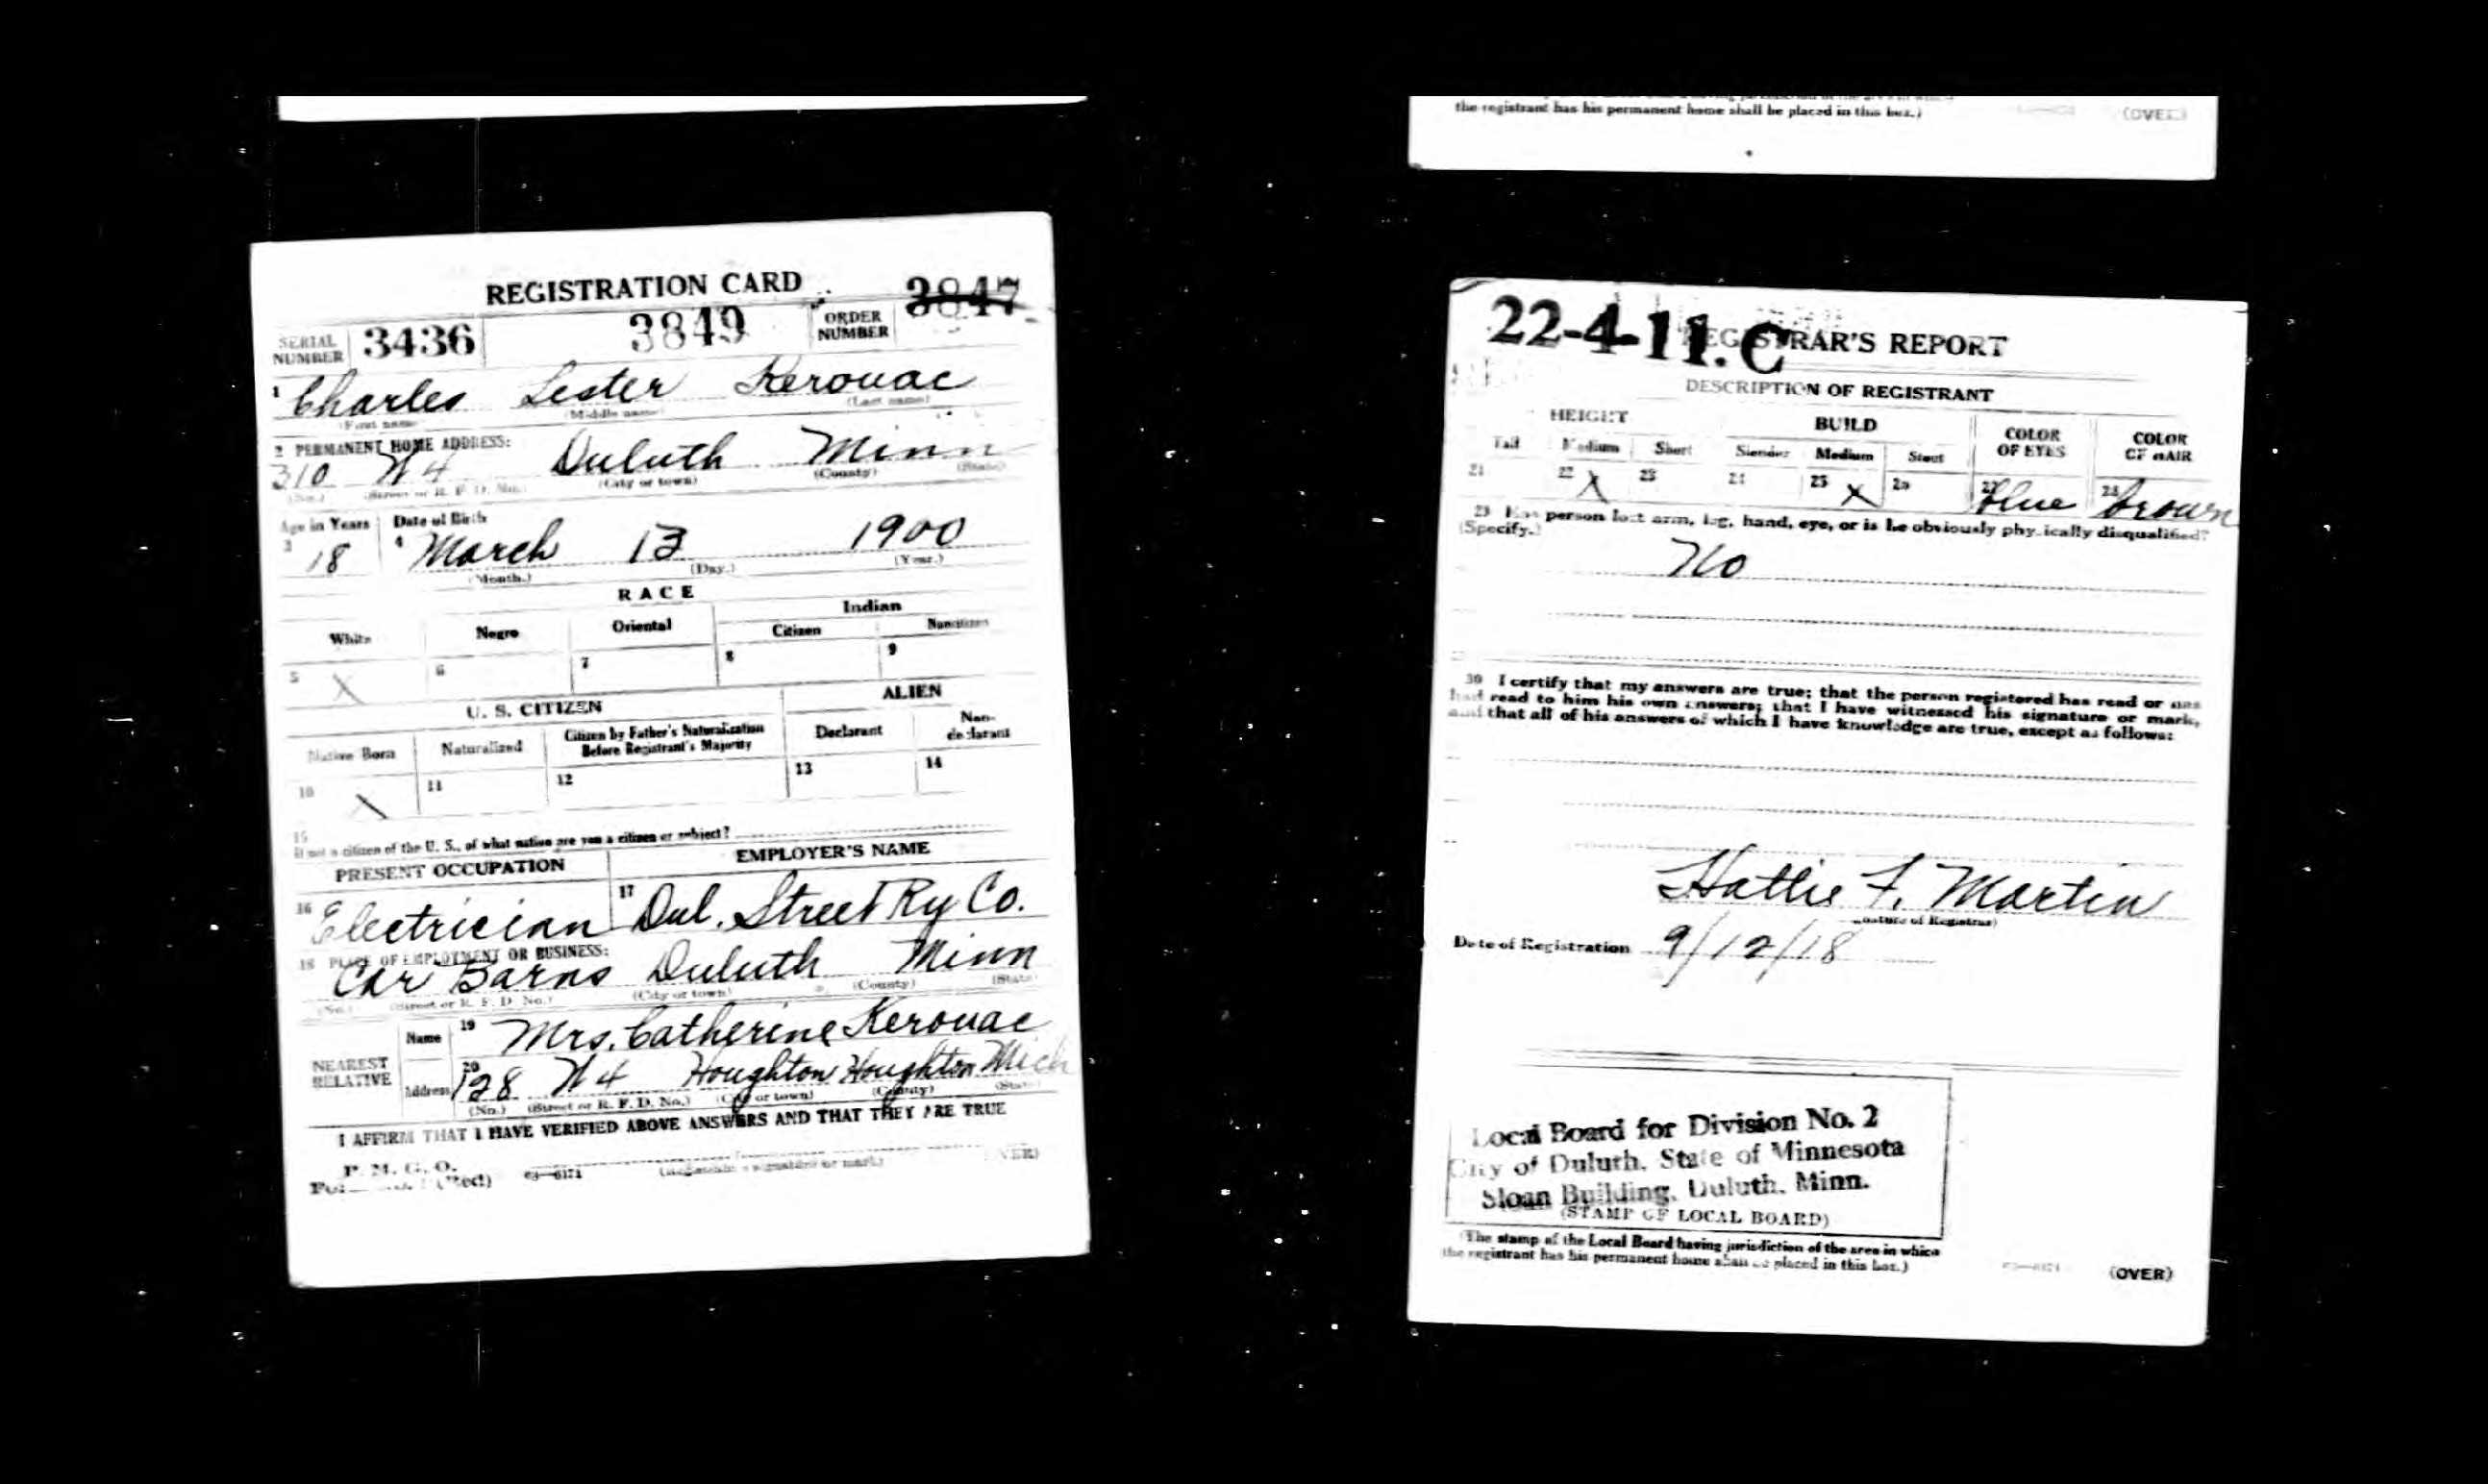 the registrant has his permanent home shall be placed in this box.) (OVER)
REGISTRATION CARD
SERIAL NUMBER 3436 3849 ORDER NUMBER 3847
1 Charles Lester Kerouac
(First name) (Middle name) (Last name)
2 PERMANENT HOME ADDRESS:
310 W 4 Duluth Minn
(No.) (Street or R. F. D. No.) (City or town) (County) (State)
Age in Years Date of Birth
3 18 4 March 13 1900
(Month.) (Day.) (Year.)
RACE
White Negro Oriental Indian
Citizen Noncitizen
5 X 6 7 8 9
U. S. CITIZEN ALIEN
Native Born Naturalized Citizen by Father's Naturalization Before Registrant's Majority Declarant Non-declarant
10 11 12 13 14
15
If not a citizen of the U. S., of what nation are you a citizen or subject?
PRESENT OCCUPATION EMPLOYER'S NAME
16 Electrician 17 Dul. Street Ry Co.
18 PLACE OF EMPLOYMENT OR BUSINESS:
Car Barns Duluth Minn
(No.) (Street or R. F. D. No.) (City or town) (County) (State)
NEAREST RELATIVE Name 19 Mrs. Catherine Kerouac
Address 20 128 W 4 Houghton Houghton Mich
(No.) (Street or R. F. D. No.) (City or town) (County) (State)
I AFFIRM THAT I HAVE VERIFIED ABOVE ANSWERS AND THAT THEY ARE TRUE
P. M. G. O.
03—6171 (Registrant's signature or mark) (OVER)
22-4-11. C
REGISTRAR'S REPORT
DESCRIPTION OF REGISTRANT
HEIGHT BUILD COLOR OF EYES COLOR OF HAIR
Tall Medium Short Slender Medium Stout
21 22 X 23 24 25 X 26 27 Blue 28 Brown
29 Has person lost arm, leg, hand, eye, or is he obviously physically disqualified?
(Specify.)
No
30 I certify that my answers are true; that the person registered has read or has
had read to him his own answers; that I have witnessed his signature or mark,
and that all of his answers of which I have knowledge are true, except as follows:
Hattie F. Martin
(Signature of Registrar)
Date of Registration 9/12/18
Local Board for Division No. 2
City of Duluth, State of Minnesota
Sloan Building, Duluth, Minn.
(STAMP OF LOCAL BOARD)
(The stamp of the Local Board having jurisdiction of the area in which
the registrant has his permanent home shall be placed in this box.)
03—6171 (OVER)